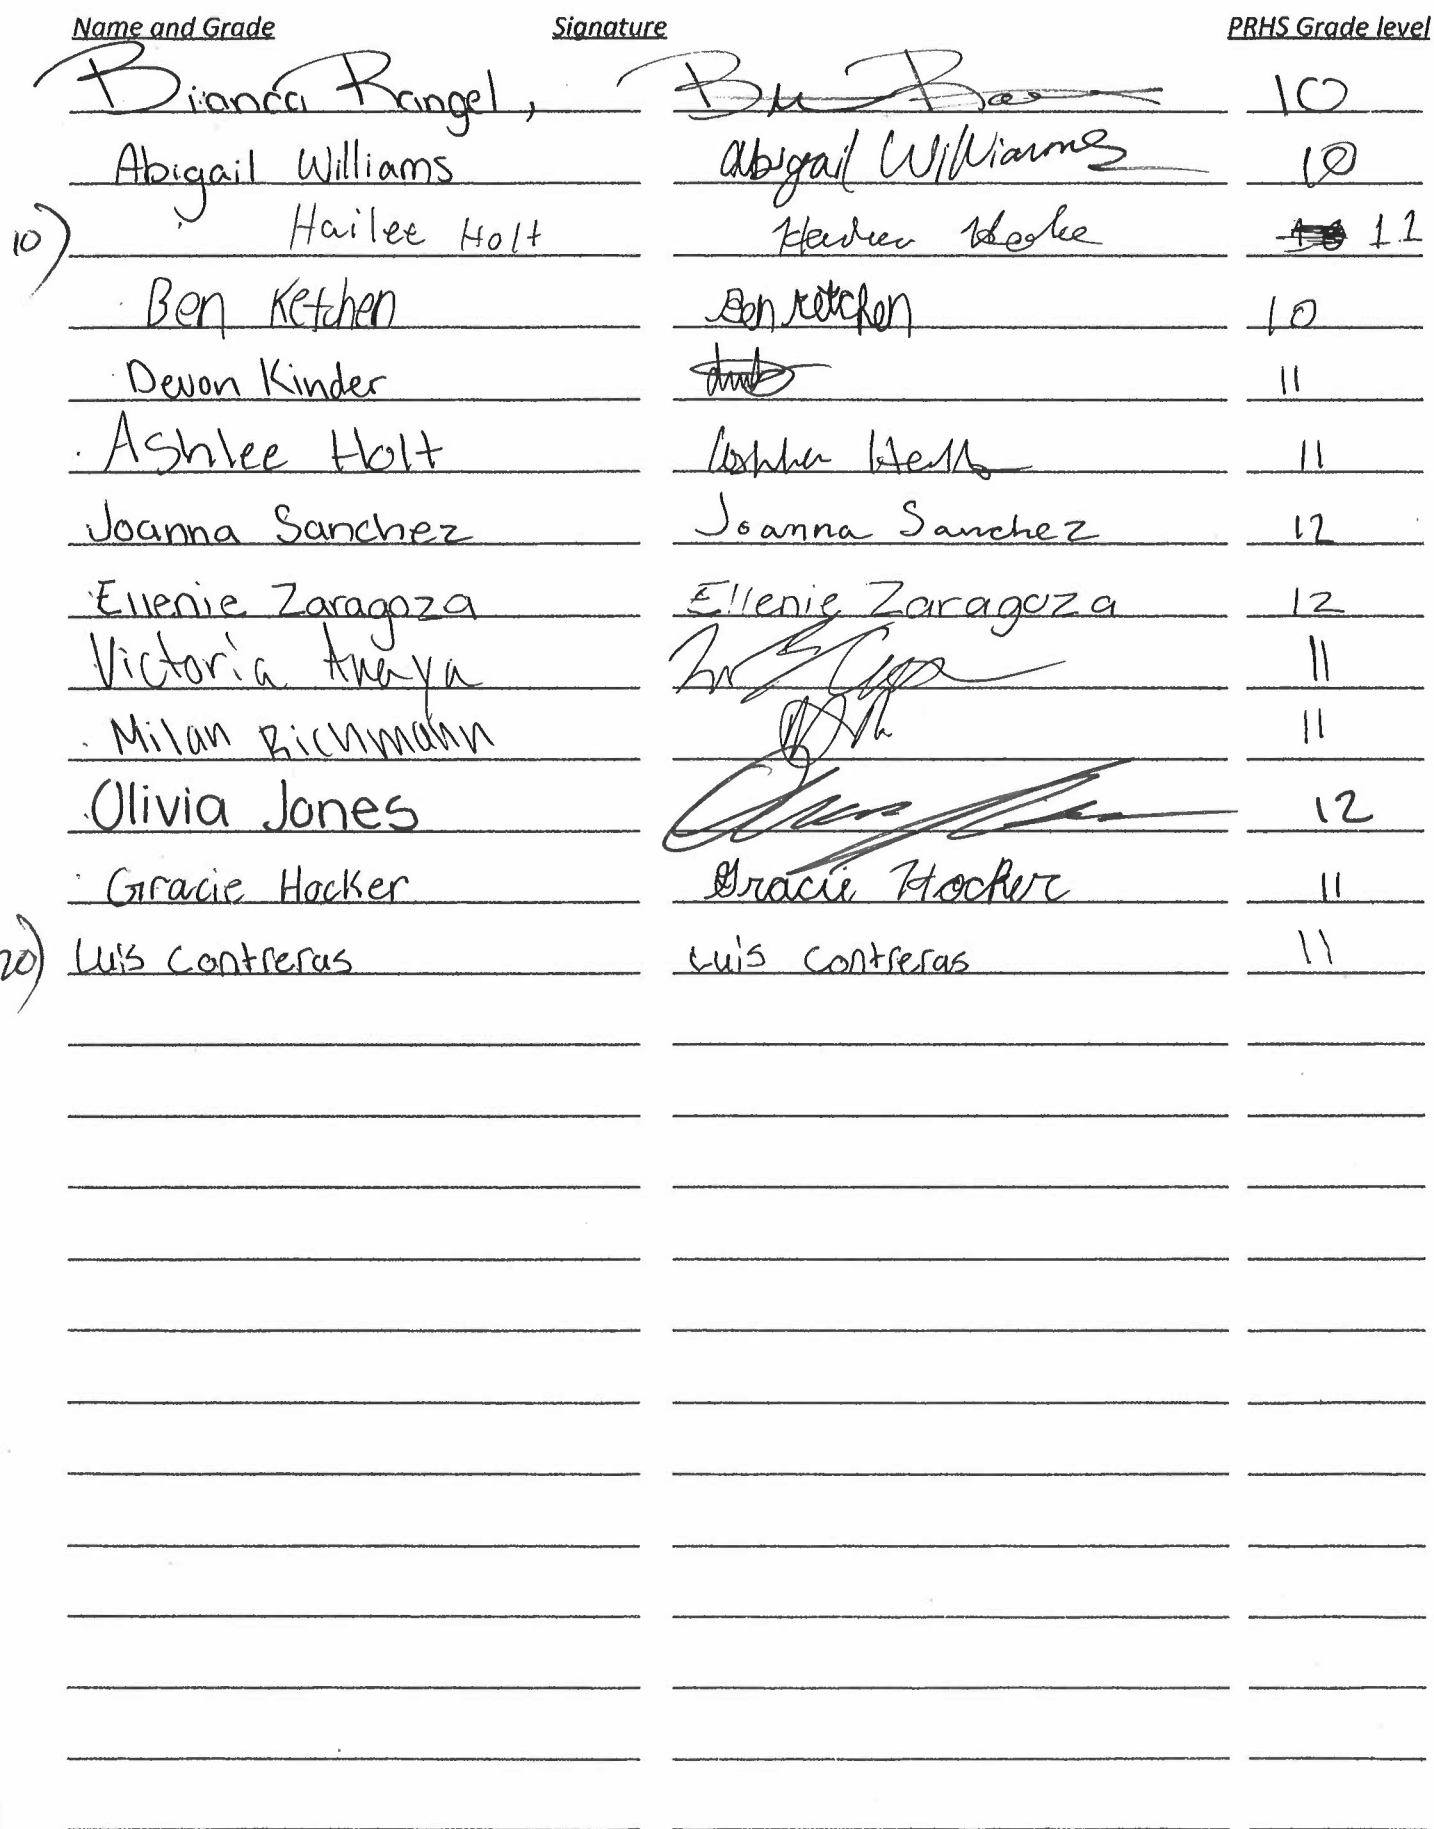 Name and Grade Signature PRHS Grade level
Bianca Rangel, 10
Abigail Williams Abigail Williams 10
10) Hailee Holt 11
Ben Ketchen Ben Ketchen 10
Devon Kinder 11
Ashlee Holt 11
Joanna Sanchez Joanna Sanchez 12
Ellenie Zaragoza Ellenie Zaragoza 12
Victoria Anaya 11
Milan Richmann 11
Olivia Jones 12
Gracie Hocker Gracie Hocker 11
20) Luis Contreras Luis Contreras 11